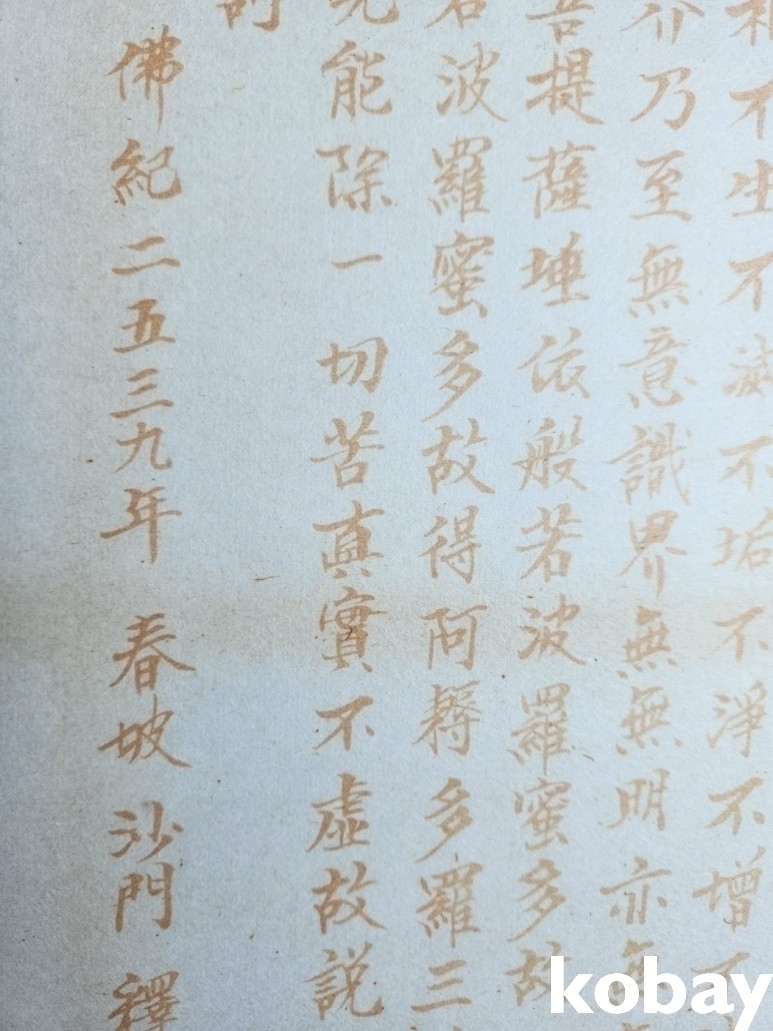 不生不滅不垢不淨不增不
界乃至無意識界無無明亦無
菩提薩埵依般若波羅蜜多故
若波羅蜜多故得阿耨多羅三
能除一切苦真實不虛故説
佛紀二五三九年 春坡 沙門 釋
kobay